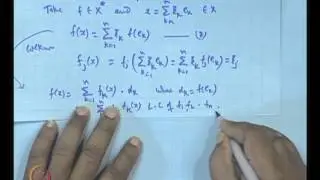 Take f ∈ X* and x = ∑_{k=1}^{n} ξ_k e_k ∈ X
f(x) = ∑_{k=1}^{n} ξ_k f(e_k) —— (2)
f_j(x) = f_j (∑_{k=1}^{n} ξ_k e_k) = ∑_{k=1}^{n} ξ_k f_j(e_k) = ξ_j
f(x) = ∑_{k=1}^{n} f_k(x) · α_k where α_k = f(e_k)
f_k(x) L.C of f_1 f_2 - f_n .